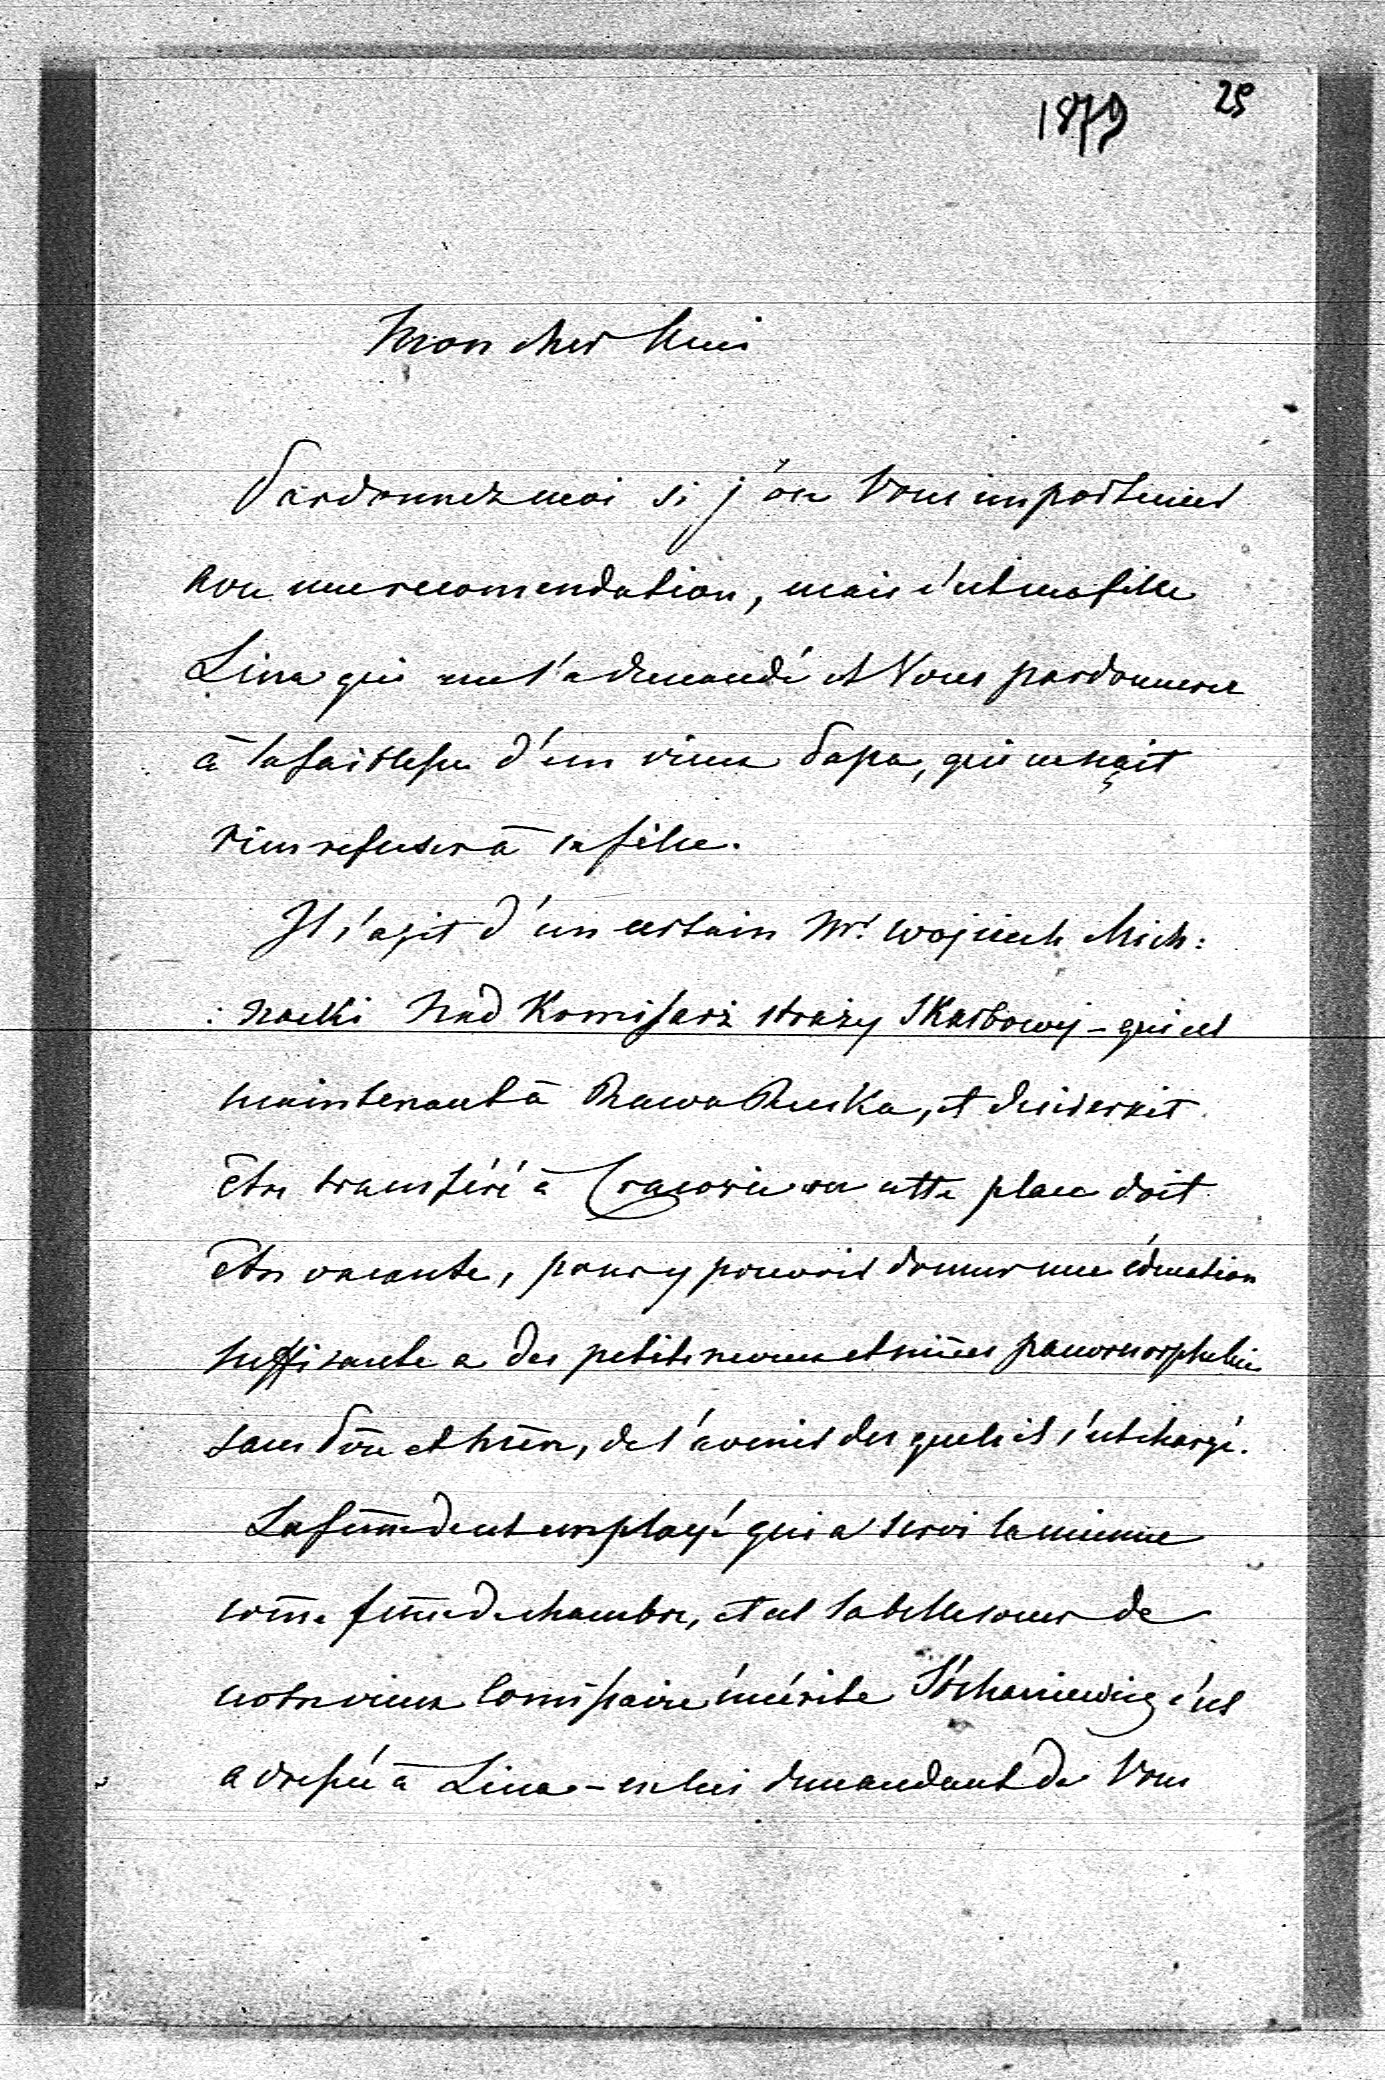 1879 25
Mon cher Ami
Pardonnez moi si j'ose Vous importuner
avec une recomendation, mais c'est ma fille
Lina qui me l'a demandé et Vous pardonnerez
à la faiblesse d'un vieux Papa, qui ne sçait
rien refuser à sa fille.
Il s'agit d'un certain Mr. Wojciech Mich:
: nacki Nad Komissarz straży Skarbowy - qui est
maintenant à Rawa Ruska, et desirerait
être transféré à Cracovie ou cette place doit
être vacante, pour y pouvoir donner une éducation
suffisante a des petits neveux et nièces pauvres orphelins
sans Père et Mère, de l'avenir des quels il s'est chargé.
La fem̄e de cet employé qui a servi la mienne
com̄e fem̄e de chambre, et est la belle soeur de
notre vieux Comissaire émérite s'est
adressée à Lina - en lui demandant de Vous